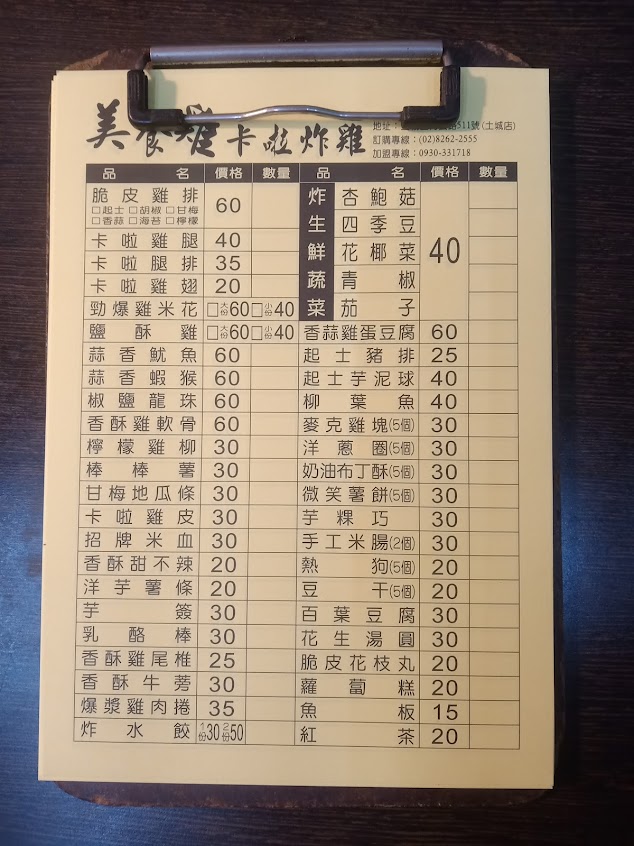 美食雞卡啦炸雞
511號(土城店)
訂購專線：(02)8262-2555
加盟專線：0930-331718
品名 價格 數量
脆皮雞排 60
□起士 □胡椒 □甘梅
□香蒜 □海苔 □檸檬
卡啦雞腿 40
卡啦腿排 35
卡啦雞翅 20
勁爆雞米花 □大份60 □小份40
鹽酥雞 □大份60 □小份40
蒜香魷魚 60
蒜香蝦猴 60
椒鹽龍珠 60
香酥雞軟骨 60
檸檬雞柳 30
棒棒薯 30
甘梅地瓜條 30
卡啦雞皮 30
招牌米血 30
香酥甜不辣 20
洋芋薯條 20
芋簽 30
乳酪棒 30
香酥雞尾椎 25
香酥牛蒡 30
爆漿雞肉捲 35
炸水餃 1份30 2份50
品名 價格 數量
炸生鮮蔬菜 40
杏鮑菇
四季豆
花椰菜
青椒
茄子
香蒜雞蛋豆腐 60
起士豬排 25
起士芋泥球 40
柳葉魚 40
麥克雞塊(5個) 30
洋蔥圈(5個) 30
奶油布丁酥(5個) 30
微笑薯餅(5個) 30
芋粿巧 30
手工米腸(2個) 30
熱狗(5個) 20
豆干(5個) 20
百葉豆腐 30
花生湯圓 30
脆皮花枝丸 20
蘿蔔糕 20
魚板 15
紅茶 20